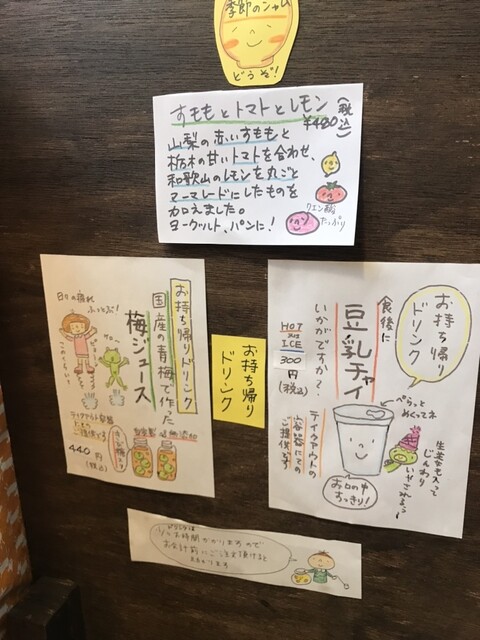 季節のジャム
どうぞ!
すももとトマトとレモン
¥480(税込)
山梨の赤いすももと
栃木の甘いトマトを合わせ、
和歌山のレモンを丸ごと
マーマレードにしたものを
加えました。
ヨーグルト、パンに!
クエン酸
たっぷり
お持ち帰りドリンク
国産の青梅で作った
梅ジュース
日々の疲れ
ふっとぶ!
テイクアウト容器
にてご提供です
440円
(税込)
お持ち帰り
ドリンク
お持ち帰り
ドリンク
食後に
豆乳チャイ
いかがですか?
HOT
ICE
300
円
(税込)
テイクアウトの
容器にての
ご提供です
ぺらっと
めくってネ
生姜も入って
じんわり
お口の中
すっきり!
ドリンクは
少々お時間かかりますので
お会計前にご注文頂けると
助かります